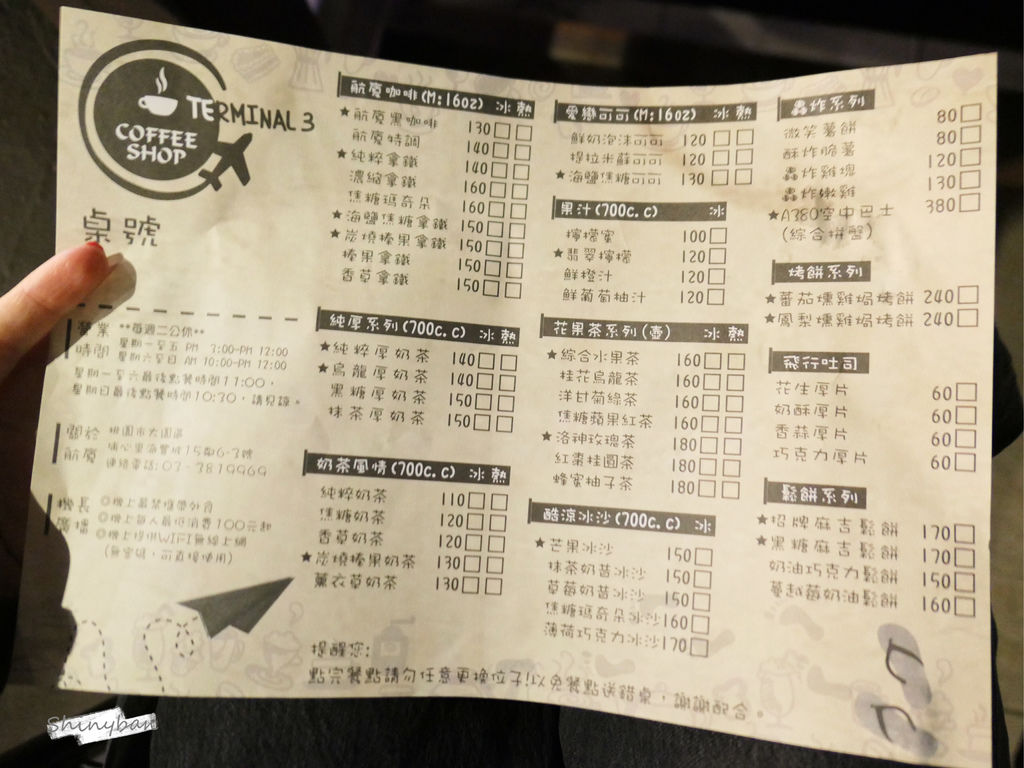 TERMINAL 3
COFFEE
SHOP
桌號
營業時間
**每週二公休**
星期一至五 PM 3:00-PM 12:00
星期六至日 AM 10:00-PM 12:00
星期一至六最後點餐時間11:00，
星期日最後點餐時間10:30，請見諒。
關於航廈
桃園市大園區
埔心里海豐坡15鄰6-3號
連絡電話:03-3819969
機長廣播
◎機上嚴禁攜帶外食
◎機上每人最低消費100元起
◎機上提供WIFI無線上網
(無密碼，可直接使用)
航廈咖啡(M:16oz) 冰 熱
★航廈黑咖啡 130□□
航廈特調 140□□
★純粹拿鐵 140□□
濃縮拿鐵 160□□
焦糖瑪奇朵 160□□
★海鹽焦糖拿鐵 150□□
★炭燒榛果拿鐵 150□□
榛果拿鐵 150□□
香草拿鐵 150□□
純厚系列(700c.c) 冰 熱
★純粹厚奶茶 140□□
★烏龍厚奶茶 140□□
黑糖厚奶茶 150□□
抹茶厚奶茶 150□□
奶茶風情(700c.c) 冰 熱
純粹奶茶 110□□
焦糖奶茶 120□□
香草奶茶 120□□
★炭燒榛果奶茶 130□□
薰衣草奶茶 130□□
愛戀可可(M:16oz) 冰 熱
鮮奶泡沫可可 120□□
提拉米蘇可可 120□□
★海鹽焦糖可可 130□□
果汁(700c.c) 冰
檸檬蜜 100□
★翡翠檸檬 120□
鮮橙汁 120□
鮮葡萄柚汁 120□
花果茶系列(壺) 冰 熱
★綜合水果茶 160□□
桂花烏龍茶 160□□
洋甘菊綠茶 160□□
焦糖蘋果紅茶 160□□
★洛神玫瑰茶 180□□
紅棗桂圓茶 180□□
蜂蜜柚子茶 180□□
酷涼冰沙(700c.c) 冰
★芒果冰沙 150□
抹茶奶昔冰沙 150□
草莓奶昔冰沙 150□
焦糖瑪奇朵冰沙160□
薄荷巧克力冰沙170□
轟炸系列
微笑薯餅 80□
酥炸脆薯 80□
轟炸雞塊 120□
轟炸嫩雞 130□
★A380空中巴士 380□
(綜合拼盤)
烤餅系列
★蕃茄燻雞焗烤餅 240□
★鳳梨燻雞焗烤餅 240□
飛行吐司
花生厚片 60□
奶酥厚片 60□
香蒜厚片 60□
巧克力厚片 60□
鬆餅系列
★招牌麻吉鬆餅 170□
★黑糖麻吉鬆餅 170□
奶油巧克力鬆餅 150□
蔓越莓奶油鬆餅 160□
提醒您:
點完餐點請勿任意更換位子!以免餐點送錯桌，謝謝配合。
Shinyban